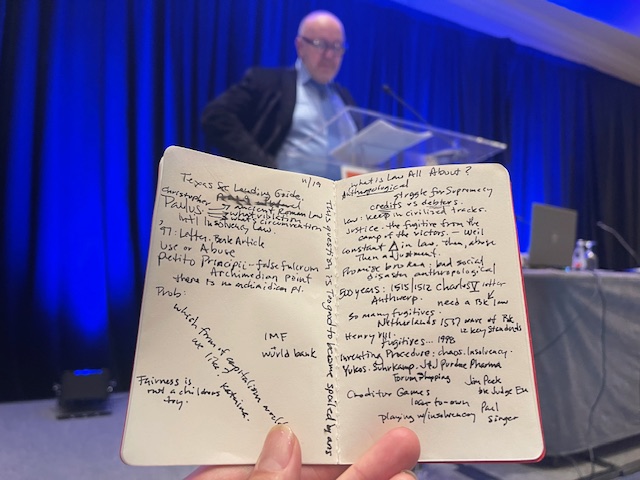 11/19
Texas Sec Lending Guide.
Christopher
Paulus
→ ancient Roman Law
→ what violation
what circumvention
Int'l Insolvency Law.
97: Letter, Bank Article
use or Abuse
Petito Principii - false fulcrum
Archimedian Point
there is no archimidian pt.
Prob:
which from of capitalism would
we like?
IMF
World bank
Fairness is
not a childrens
toy.
This question is Too good to become spoiled by ans
What is Law All About?
Anthropological
struggle for Supremacy
credits vs debtors.
Law: keep in civilized tracks.
Justice - the fugitive from the
camp of the victors. - Weil
constant Δ in law, then, abuse
Then adjustment.
Promise broken: bad social
disaster anthropological
500 years: 1515/1512 Charles V letter
Antwerp. need a Bk law
so many fugitives.
Netherlands 1537 wave of Bk
12 key standards
Henry VIII.
fugitives... 1998
Inventing Procedure: chaos. Insolvency.
Yukos. Suhrkamp. J+J Purdue Pharma
Forum shopping
Jim Peck
bk Judge Esu
Creditor Games
loan-to-own
Paul
Singer
playing w/insolvency